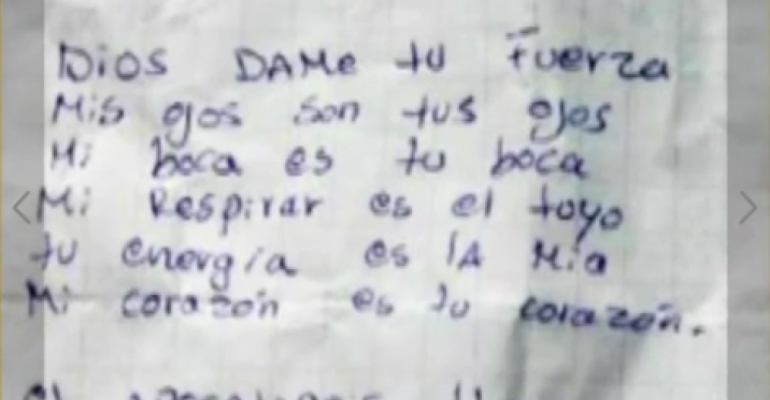 Dios DAMe tu Fuerza
Mis ojos son tus ojos
Mi boca es tu boca
Mi Respirar es el tuyo
tu energía es lA Mía
Mi corazón es tu corazón.